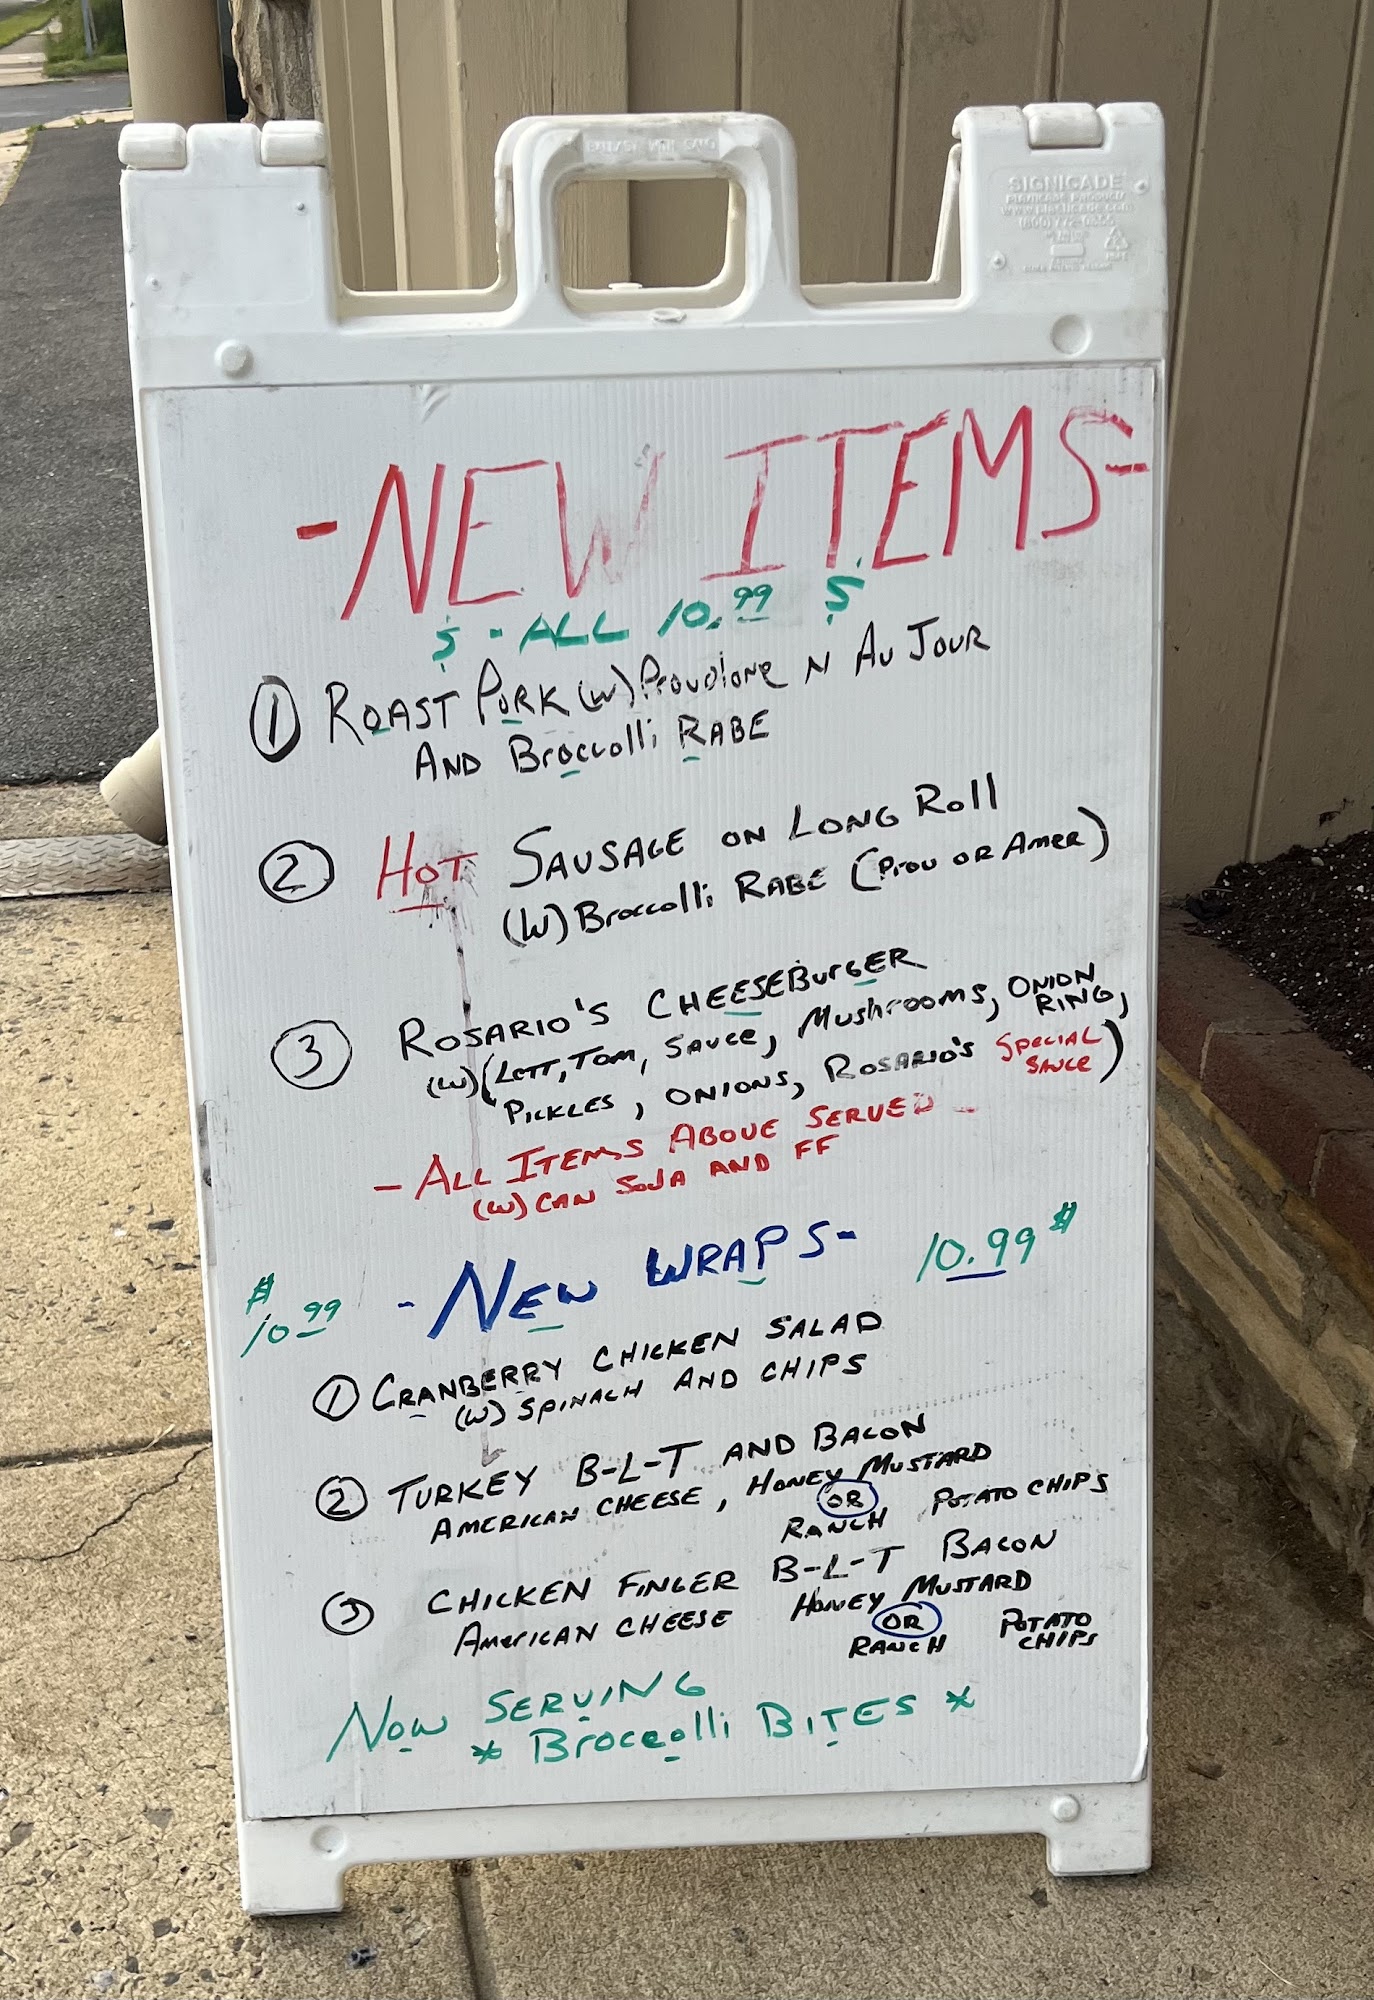 BALLAST WITH SAND
SIGNICADE
-NEW ITEMS-
$ - ALL 10.99 $
① ROAST PORK (W) Provolone N AU JOUR
AND Broccolli RABE
② HOT SAUSAGE ON LONG Roll
(W) Broccolli RABE (Prov OR Amer)
③ ROSARIO'S CHEESEBurgER
(W)(LETT, TOM, SAUCE, MushrOOMS, ONION RING,
PICKLES, ONIONS, ROSARIO'S SPECIAL SAUCE)
- ALL ITEMS ABOVE SERVED -
(W) CAN SODA AND FF
$10.99 - NEW WRAPS- 10.99$
① CRANBERRY CHICKEN SALAD
(W) SPINACH AND CHIPS
② TURKEY B-L-T AND BACON
AMERICAN CHEESE, HONEY MUSTARD
OR
RANCH POTATO CHIPS
③ CHICKEN FINGER B-L-T BACON
AMERICAN CHEESE HONEY MUSTARD
OR
RANCH POTATO CHIPS
NOW SERVING
* Broccolli BITES *